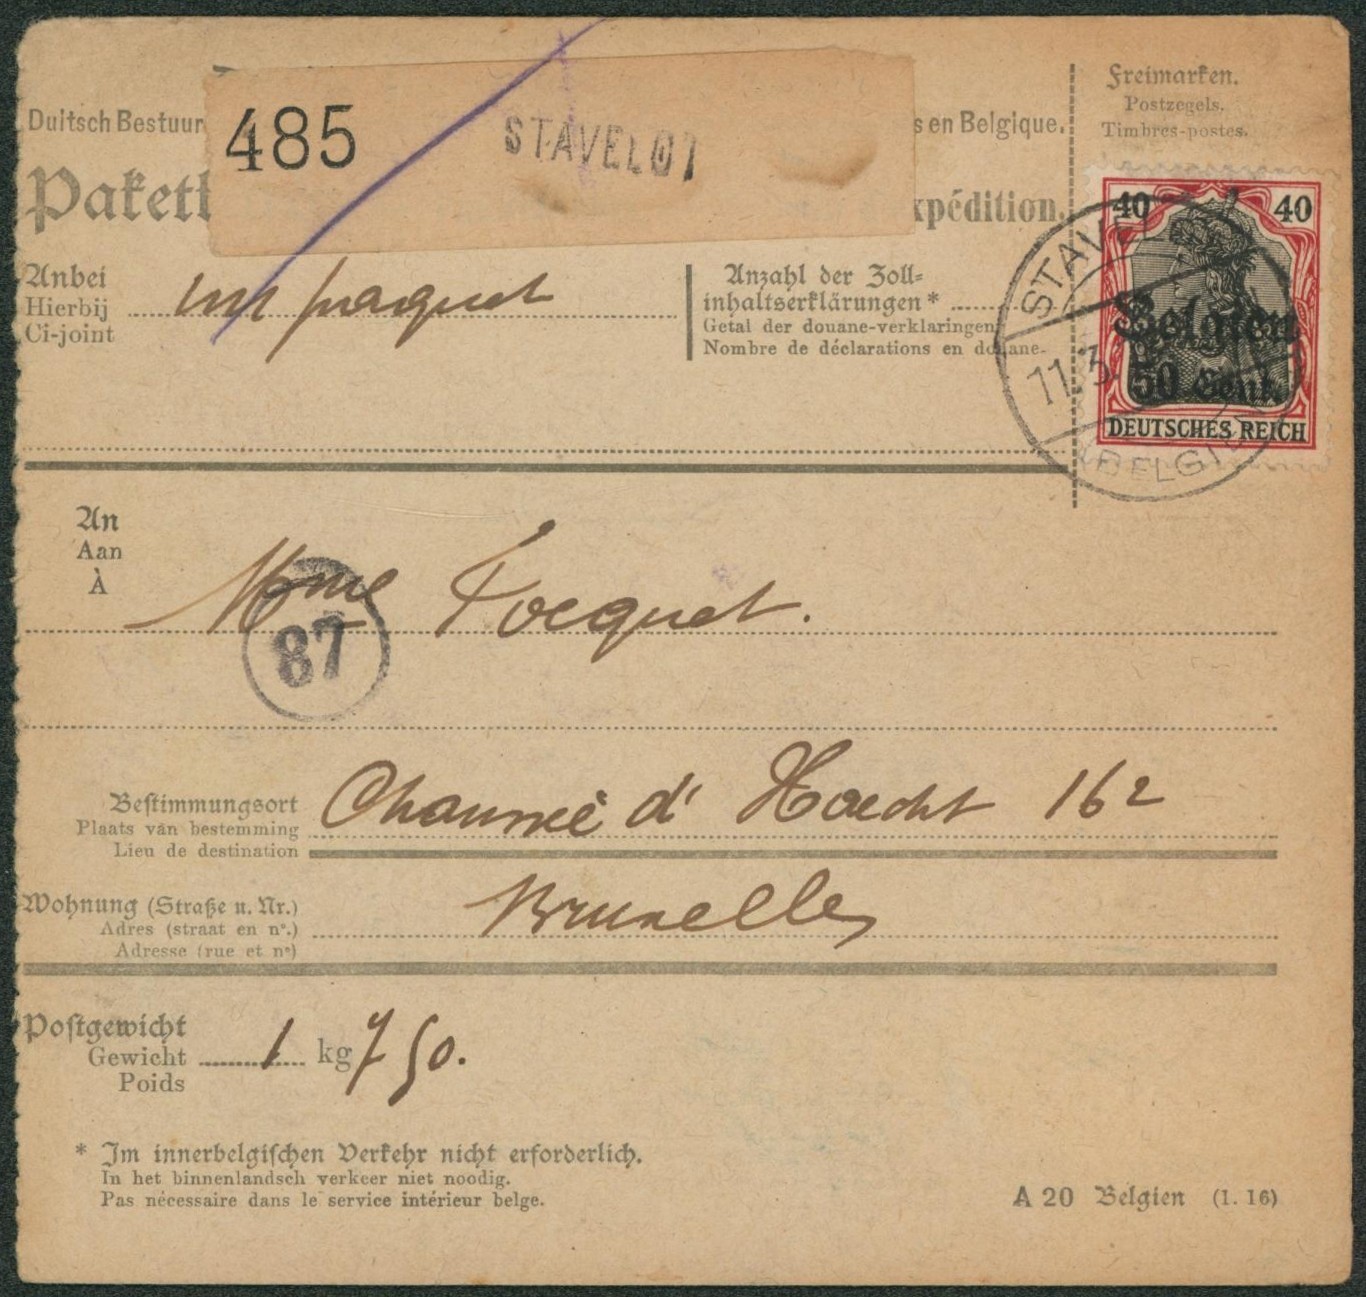 Freimarken.
Postzegels.
Timbres-postes.
Duitsch Bestuur
s en Belgique.
485
STAVELOT
Paketk
xpédition.
40 40
Belgien
50 Cent.
DEUTSCHES REICH
STAVEL
11.3.
BELGIEN
Anbei
Hierbij
Ci-joint
un paquet
Anzahl der Zoll=
inhaltserklärungen *
Getal der douane-verklaringen
Nombre de déclarations en douane.
An
Aan
À
Mme Focquet.
87
Bestimmungsort
Plaats van bestemming
Lieu de destination
Chaussée d' Haecht 162
Wohnung (Straße u. Nr.)
Adres (straat en nº.)
Adresse (rue et nº)
Bruxelles
Postgewicht
Gewicht
Poids
1 kg 750.
* Im innerbelgischen Verkehr nicht erforderlich.
In het binnenlandsch verkeer niet noodig.
Pas nécessaire dans le service intérieur belge.
A 20 Belgien (1. 16)